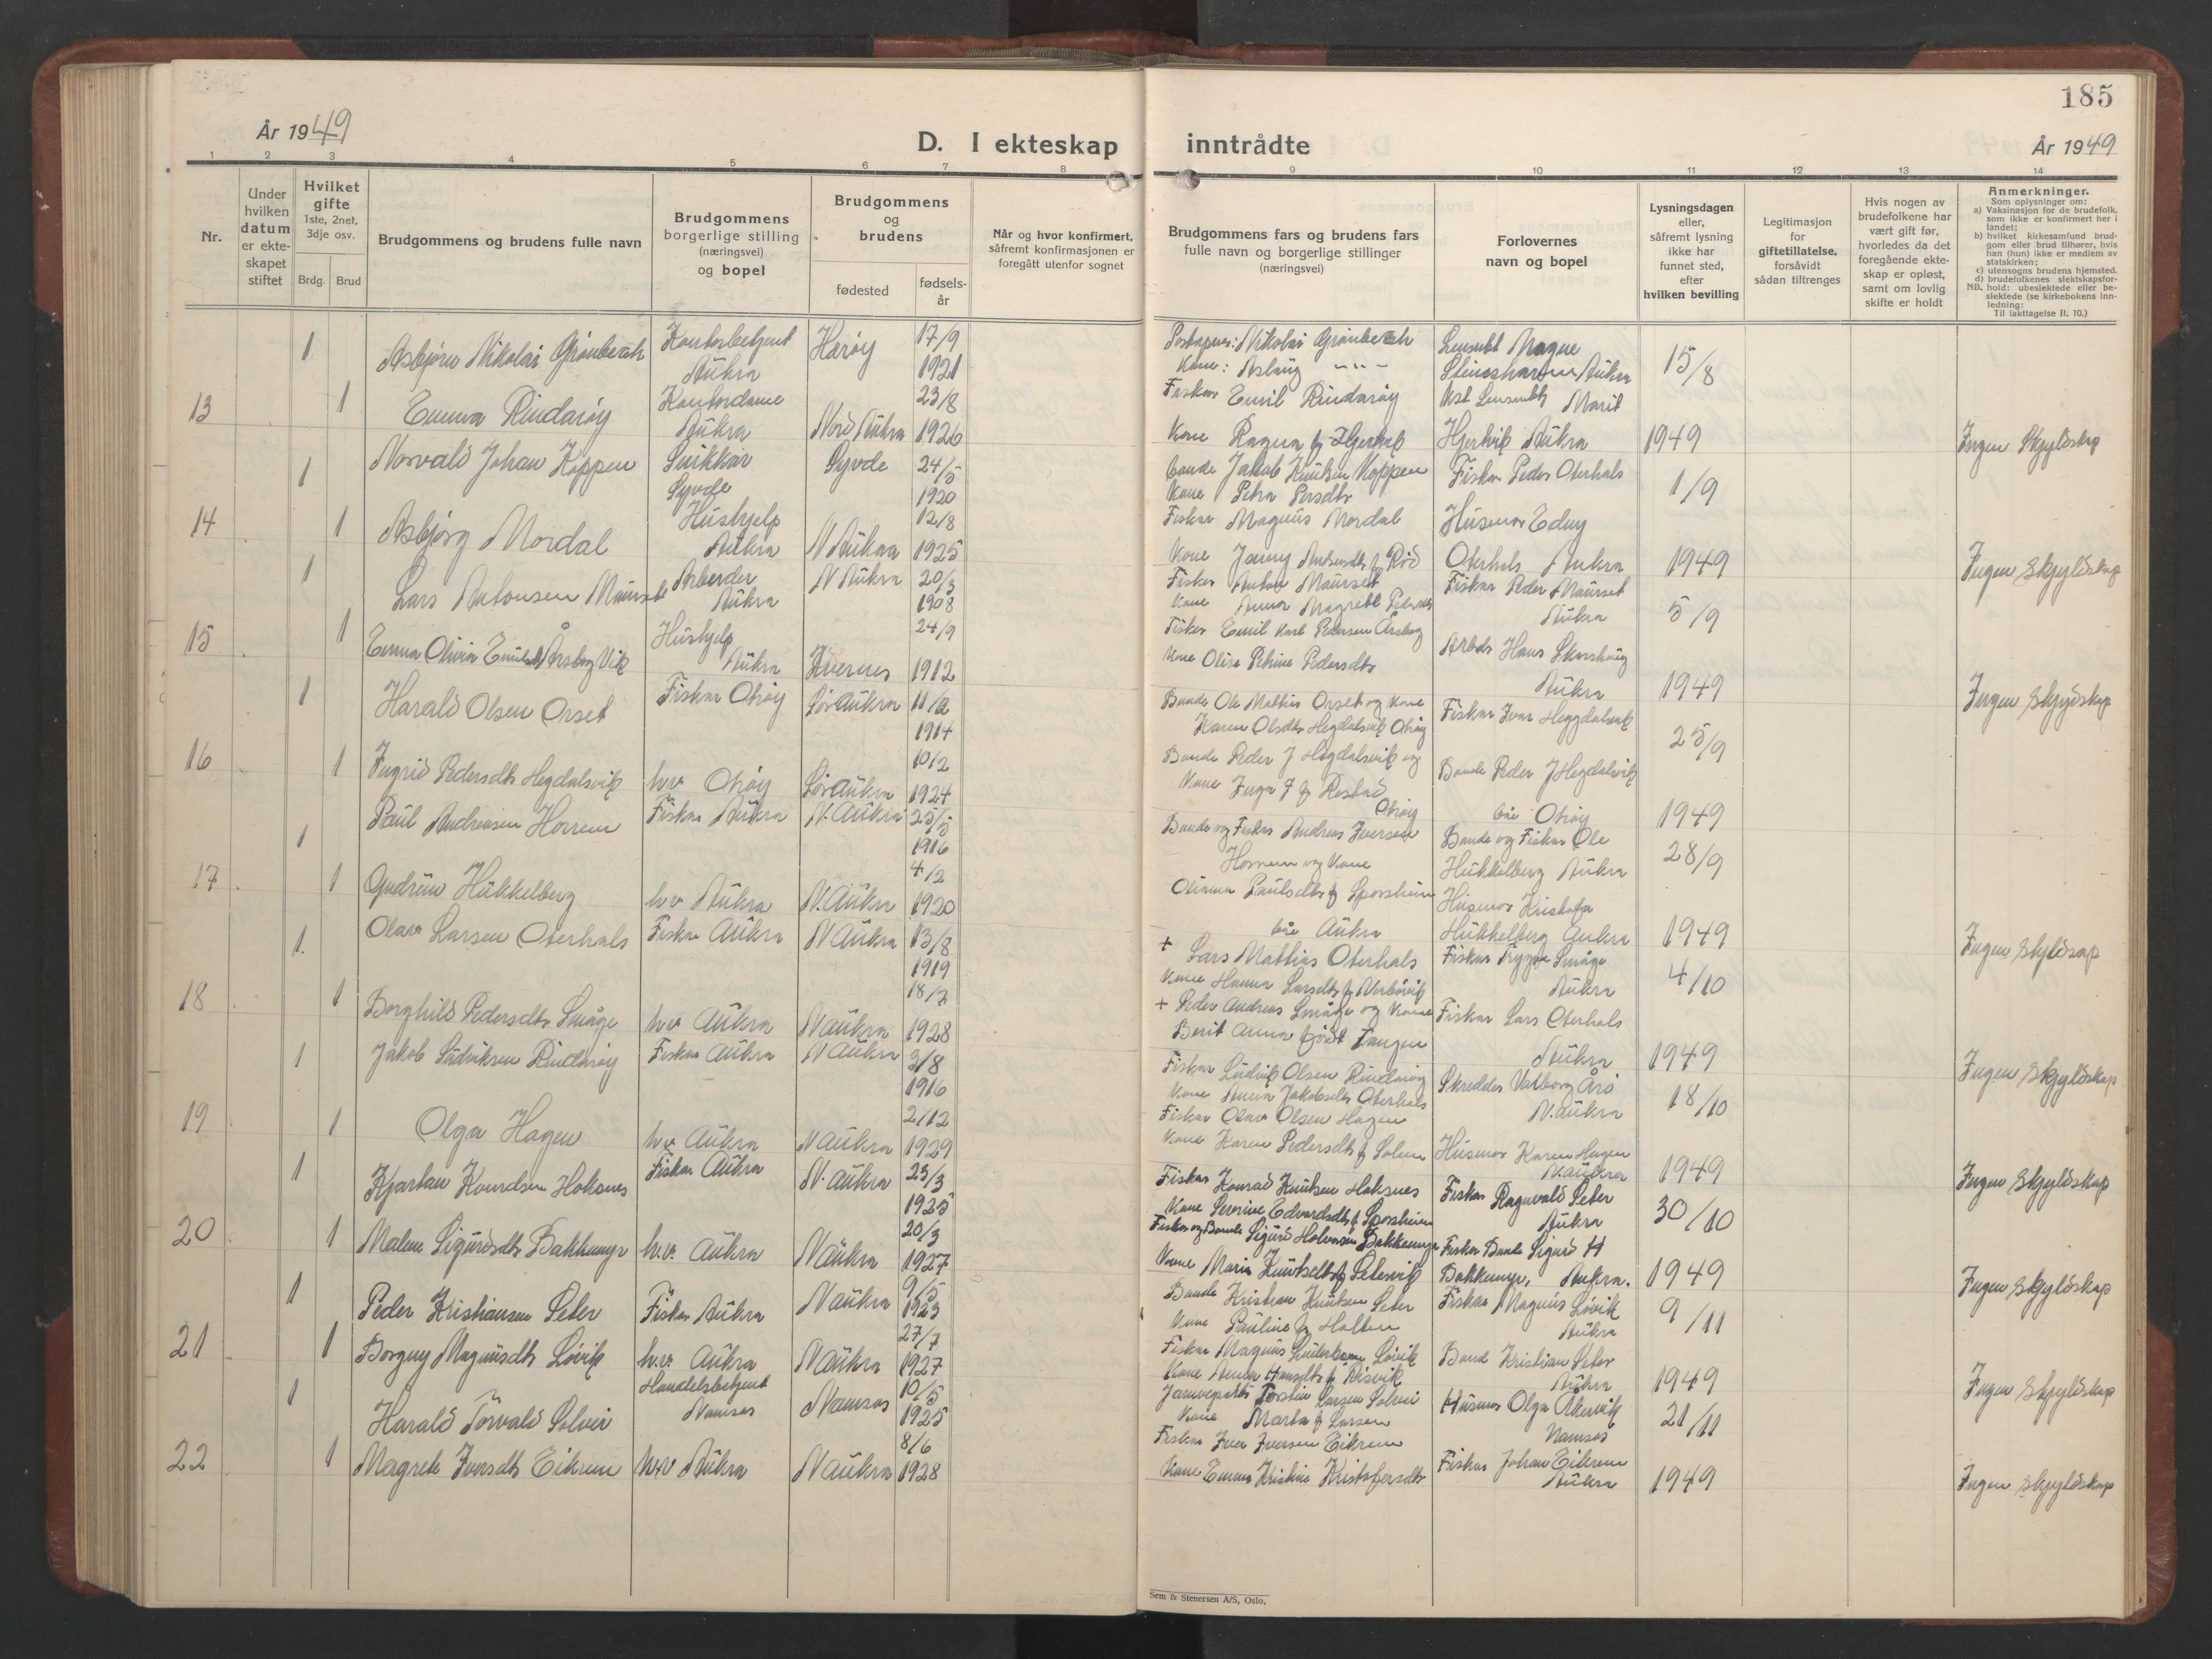 185
År 1949
D. I ekteskap inntrådte
År 1949
1 2 3 4 5 6 7 8 9 10 11 12 13 14
Nr.
Under hvilken datum er ekteskapet stiftet
Hvilket gifte
1ste, 2net, 3dje osv.
Brdg. Brud
Brudgommens og brudens fulle navn
Brudgommens borgerlige stilling (næringsvei) og bopel
Brudgommens og brudens
fødested
fødselsår
Når og hvor konfirmert, såfremt konfirmasjonen er foregått utenfor sognet
Brudgommens fars og brudens fars fulle navn og borgerlige stillinger (næringsvei)
Forlovernes navn og bopel
Lysningsdagen eller, såfremt lysning ikke har funnet sted, efter hvilken bevilling
Legitimasjon for giftetillatelse, forsåvidt sådan tiltrenges
Hvis nogen av brudefolkene har vært gift før, hvorledes da det foregående ekteskap er opløst, samt om lovlig skifte er holdt
Anmerkninger.
Som oplysninger om:
a) Vaksinasjon for de brudefolk, som ikke er konfirmert her i landet;
b) hvilket kirkesamfund brudgom eller brud tilhører, hvis han (hun) ikke er medlem av statskirken;
c) utensogns brudens hjemsted.
d) brudefolkenes slektskapsforhold: ubeslektede eller beslektede (se kirkebokens innledning:
NB.
Til iakttagelse II, 10.)
13
1 Asbjørn Nikolai Grønbech Kontorbetjent Aukra Herøy 17/9 1921
Nikolai Grønbech
Kone: Aslaug -"-
Magne
Aukra
15/8
1 Emma Rindarøy Kontordame Aukra Nord Aukra 23/8 1926
Fisker Emil Rindarøy
Kone Ragna f.
Marit
Aukra
1949
Ingen Skyldskap
14
1 Norvald Johan Koppen Snikkar Syvde Syvde 24/5 1920
Bonde Jakob Knutsen Koppen
Kone Petra Persdtr
Fiskar Peder Oterhals
1/9
1 Asbjørg Nordal Hushjelp Aukra N Aukra 12/8 1925
Fiskar Magnus Nordal
Kone Rød
Husmor Edny
Oterhals Aukra
1949
Ingen Skyldskap
15
1 Lars Antonsen Arbeider Aukra N Aukra 20/3 1908
Fisker Anton Maurset
Kone Anna Magrete
Fiskar Peder Maurset
Aukra
5/9
1 Emma Olivia Årsbog Vik Hushjelp Aukra Kvernes 24/9 1912
Fisker Emil Karl Pedersen Årsbog
Kone Olise Petrine Pedersdtr
Arbdr Hans
Aukra
1949
Ingen Skyldskap
16
1 Harald Olsen Orset Fiskar Otrøy Sør Aukra 11/2 1914
Bonde Ole Mathis Orset og Kone
Karen Olsdtr Hegdalsvik Otrøy
Fiskar Ivar Heggdalsvik
25/9
1 Ingrid Pedersdtr Hegdalsvik h.v Otrøy Sør Aukra 10/2 1924
Bonde Peder J Hegdalsvik og
Kone Inga
Otrøy
Bonde Peder J Hegdalsvik
Otrøy
1949
17
1 Paul Andreasen Horrem Fiskar Aukra N. Aukra 25/5 1916
Bonde og Fiskar Andreas Iversen
Horrem og Kone
Olianna Paulsdtr f Sporsheim
Aukra
Bonde og Fiskar Ole
Hukkelberg Aukra
28/9
1 Gudrun Hukkelberg h.v Aukra N. Aukra 4/2 1920
Husmor
Hukkelberg Aukra
1949
Ingen skyldskap
18
1 Olav Larsen Oterhals Fiskar Aukra N Aukra 13/8 1919
+ Lars Mathias Oterhals
Kone Hanna Larsdtr f
Fiskar Trygve Småge
Aukra
4/10
1 Borghild Pedersdtr Småge h.v Aukra N Aukra 18/7 1928
+ Peder Andreas Småge og Kone
Berit Anna født Tangen
Fiskar Lars Oterhals
Aukra
1949
Ingen Skyldskap
19
1 Jakob Ludviksen Rindarøy Fiskar Aukra N Aukra 3/8 1916
Fiskar Ludvik Olsen Rindarøy
Kone Anna Jakobsdtr Oterhals
Skredder Valborg Årø
N. Aukra
18/10
1 Olga Hagen h.v Aukra N Aukra 2/12 1929
Fiskar Olav Olsen Hagen
Kone Karen Pedersdtr f Solem
Husmor Karen Hagen
N. Aukra
1949
Ingen Skyldskap
20
1 Kjartan Hoksnes Fiskar Aukra N. Aukra 23/3 1925
Fiskar Konrad Knutsen Hoksnes
Kone Serine Edvardsdtr f. Sporsheim
Fiskar Ragnvald Seter
Aukra
30/10
1 Malene Sigurdsdtr Bakkemyr h.v. Aukra N Aukra 20/3 1927
Fiskar og Bonde Sigurd Bakkemyr
Kone Marie Knutsdtr f
Fiskar Bonde Sigurd H
Bakkemyr, Aukra.
1949
Ingen Skyldskap
21
1 Peder Kristiansen Seter Fiskar Aukra N Aukra 9/5 1923
Bonde Kristian Knutsen Seter
Kone Pauline f Holten
Fiskar Magnus Løvik
Aukra
9/11
1 Borgny Magnusdtr Løvik h.v. Aukra N Aukra 27/7 1927
Fiskar Magnus Løvik
Kone Hansdtr f Risvik
Bonde Kristian Seter
Aukra
1949
Ingen Skyldskap
22
1 Harald Torvald Solvei Handelsbetjent Namsos Namsos 10/5 1925
Torstein Larsen Solvei
Kone Marta f Larsen
Husmor Olga
Namsos
21/11
1 Magrete Iversdtr Eikrem h.v Aukra N Aukra 8/6 1928
Fiskar Iver Iversen Eikrem
Kone Emma Kristine Kristofersdtr
Fiskar Johan Eikrem
Aukra
1949
Ingen Skyldskap
Sem & Stenersen A/S, Oslo.